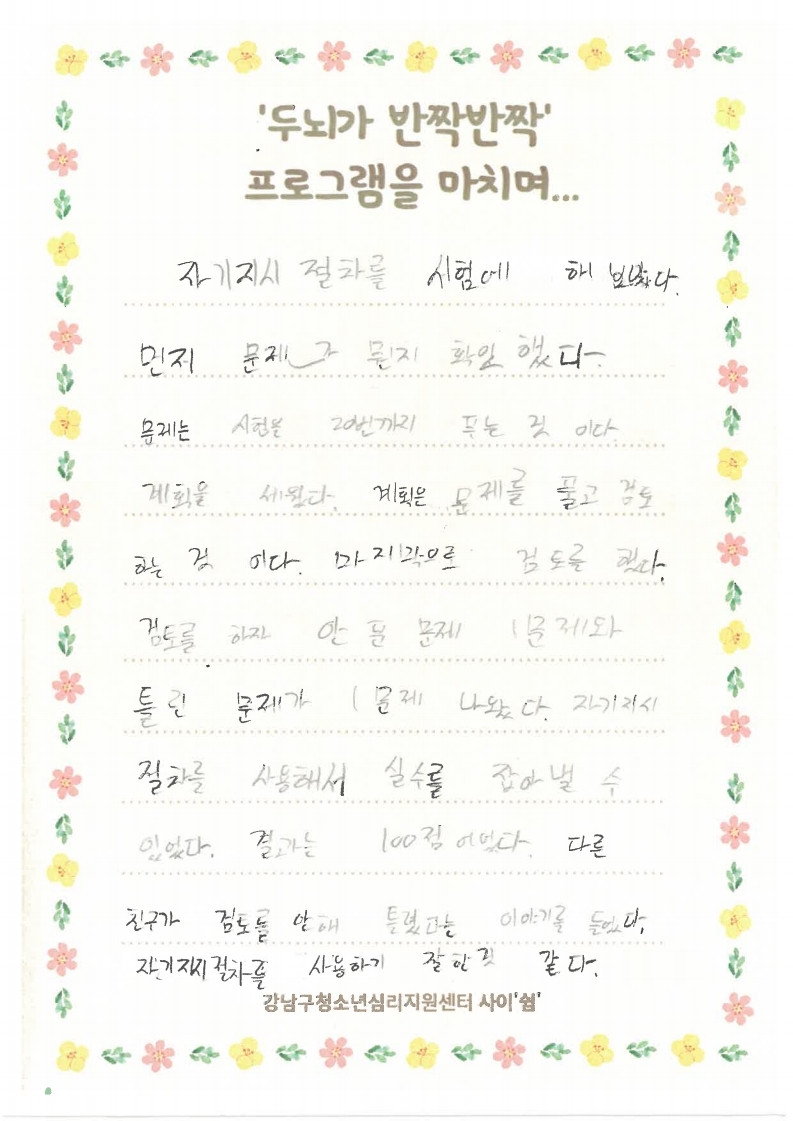 '두뇌가 반짝반짝'
프로그램을 마치며...
자기지시 절차를 시험에 해 보았다.
먼저 문제가 뭔지 확인 했다.
문제는 시험을 20번까지 푸는 것 이다.
계획을 세웠다. 계획은 문제를 풀고 검토
하는 것 이다. 마지막으로 검토를 했다.
검토를 하자 안 푼 문제 1문제와
틀린 문제가 1문제 나왔다. 자기지시
절차를 사용해서 실수를 잡아낼 수
있었다. 결과는 100점 이었다. 다른
친구가 검토를 안해 틀렸다는 이야기를 들었다.
자기지시절차를 사용하기 잘 한 것 같다.
강남구청소년심리지원센터 사이'쉼'